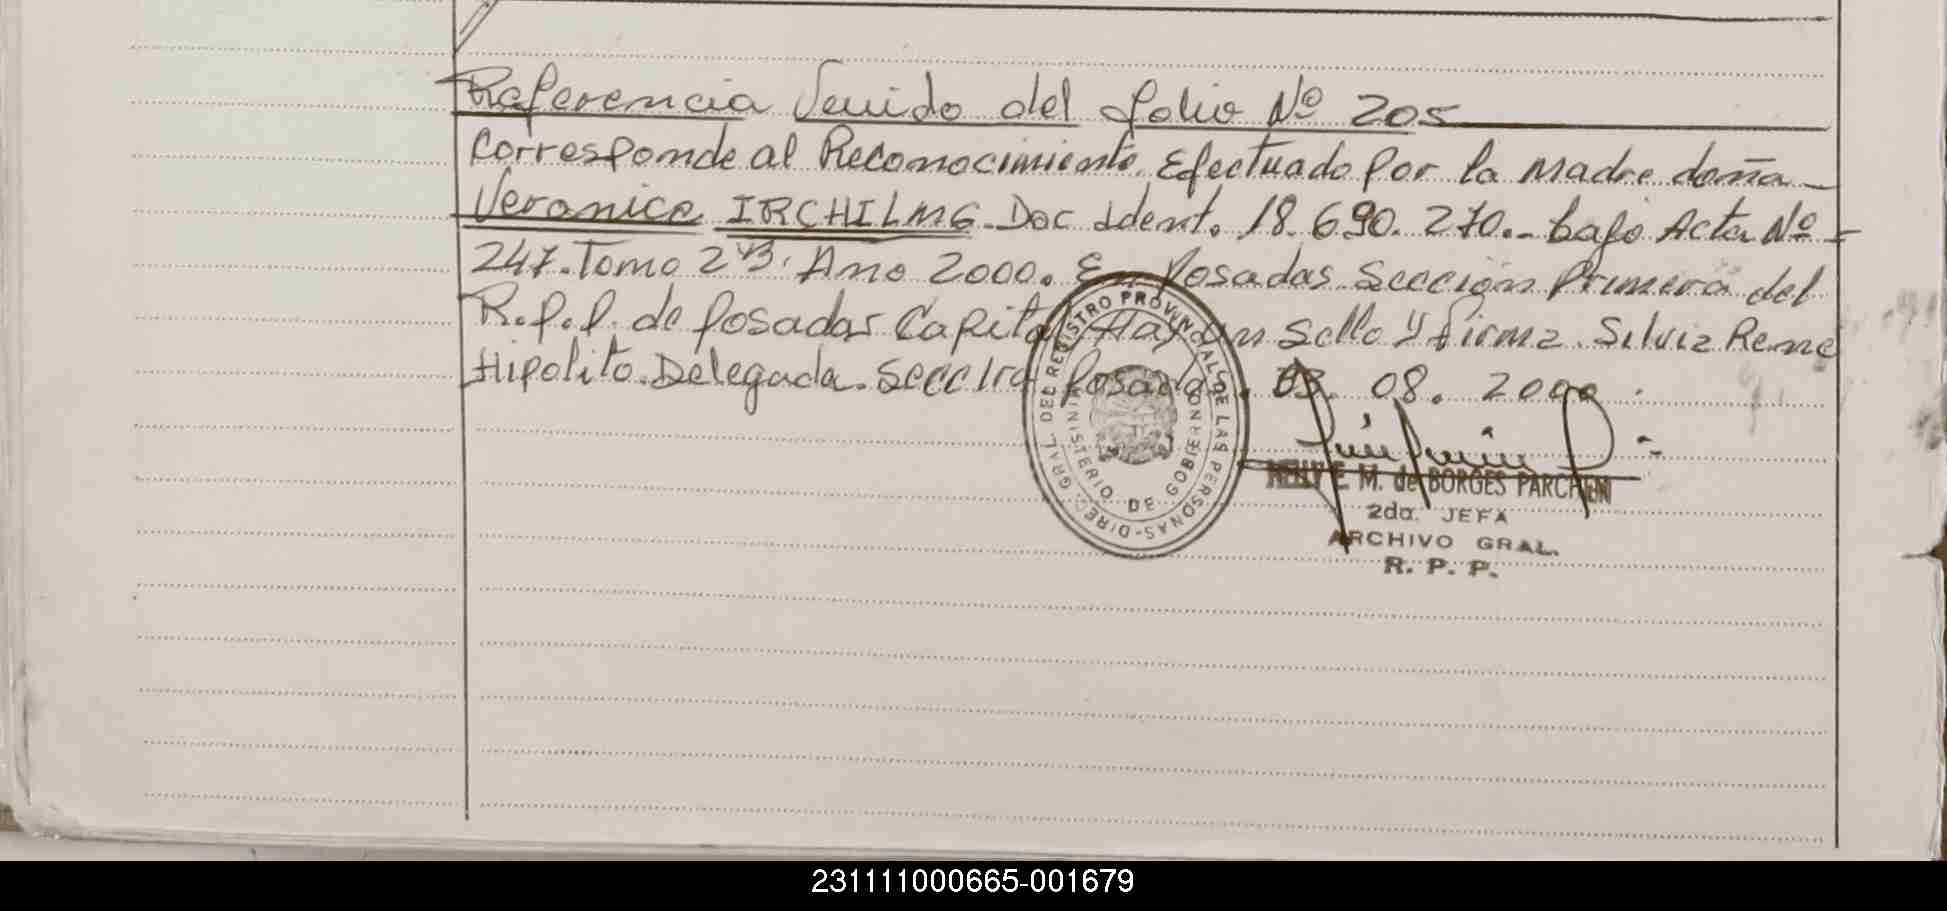 Referencia Venido del folio Nº 205
Corresponde al Reconocimiento Efectuado por la Madre doña
Veronica IRCHILMG. Doc Ident. 18.690.270.- bajo Acta Nº
247. Tomo 2 Año 2000. En Posadas Sección Primera del
R.P.P. de Posadas Capital, Hay un Sello y firma. Silvia Rene
Hipolito. Delegada. Secc 1ra Posadas. 03. 08. 2000.
DIREC. GRAL. DEL REGISTRO PROVINCIAL DE LAS PERSONAS
MINISTERIO DE GOBIERNO
NELLY E. M. de BORGES PARCHEN
2da. JEFA
ARCHIVO GRAL.
R. P. P.
231111000665-001679